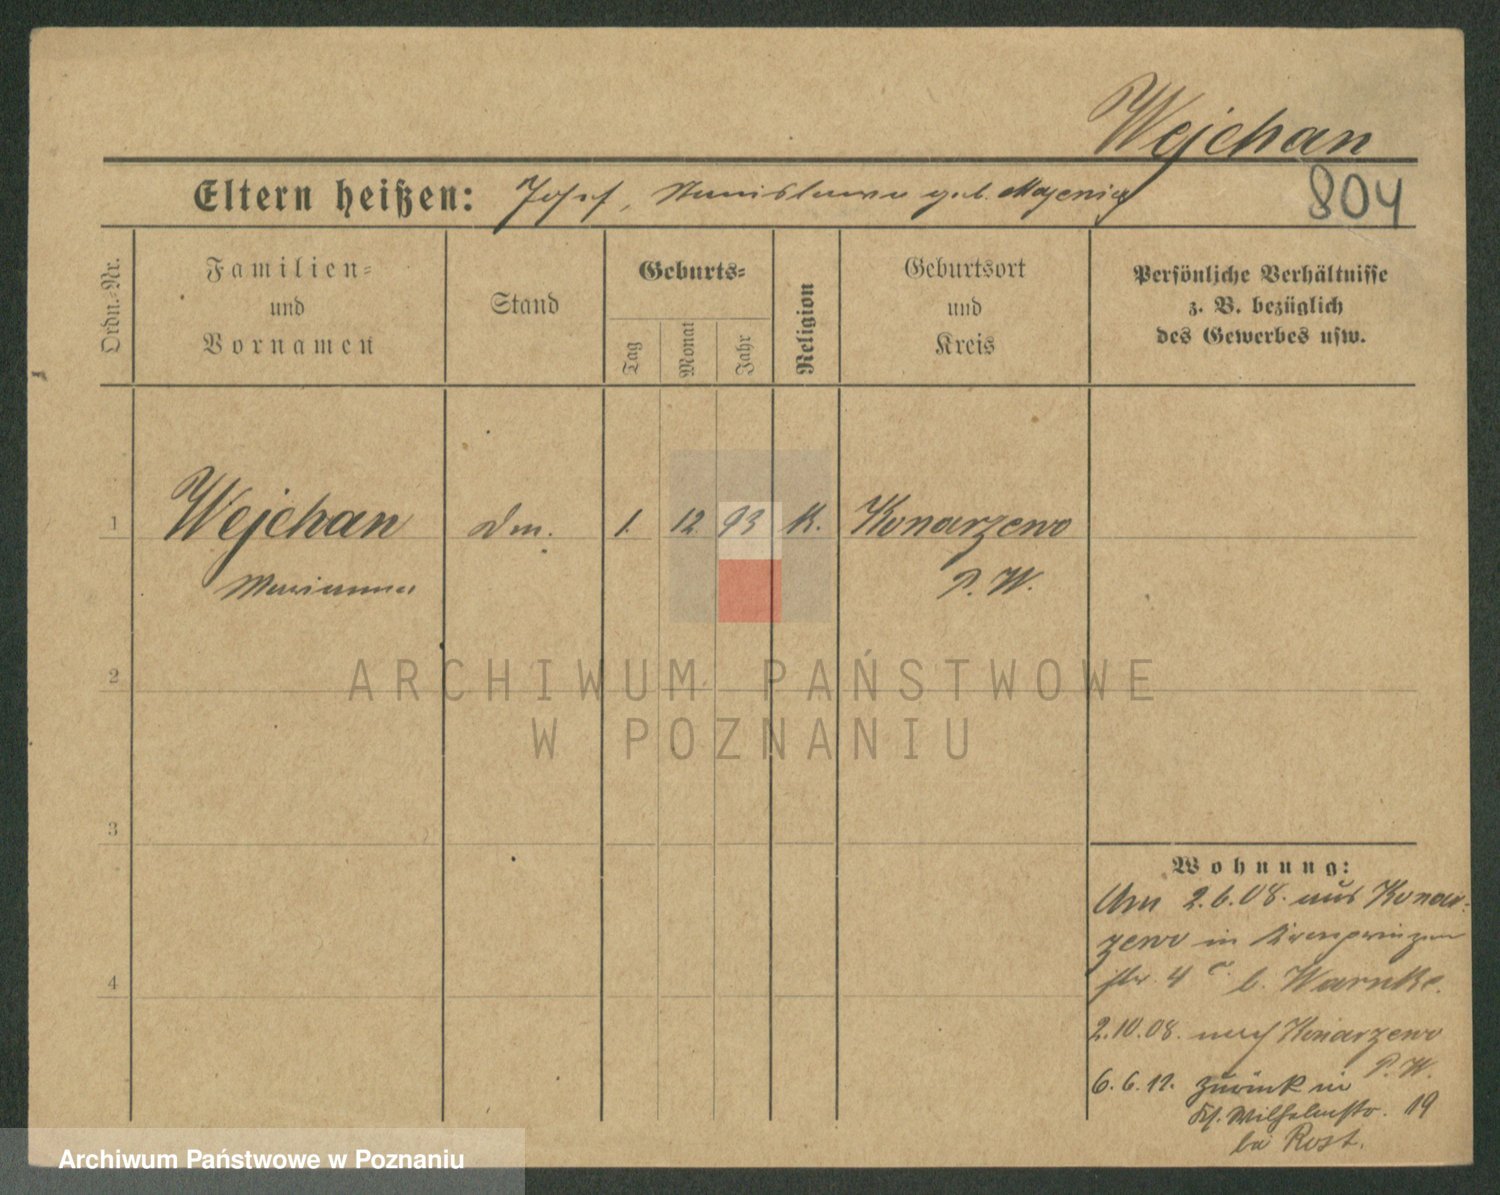 Wejchan
Eltern heißen: Josef, Stanislawa geb.
804
Ordn.-Nr.
Familien-
und
Vornamen
Stand
Geburts-
Tag
Monat
Jahr
Religion
Geburtsort
und
Kreis
Persönliche Verhältnisse
z. B. bezüglich
des Gewerbes usw.
1 Wejchan 1. 12. 93 K. Konarzewo
Marianna P. W.
2
3
4
Wohnung:
Am 2.6.08. aus Konar-
zewo in Kronprinzen
str. 4 a b. Warnke.
2.10.08. nach Konarzewo
P. W.
6.6.12. zurück in
Kl. Wilhelmstr. 19
bei Rost.
ARCHIWUM PAŃSTWOWE
W POZNANIU
Archiwum Państwowe w Poznaniu